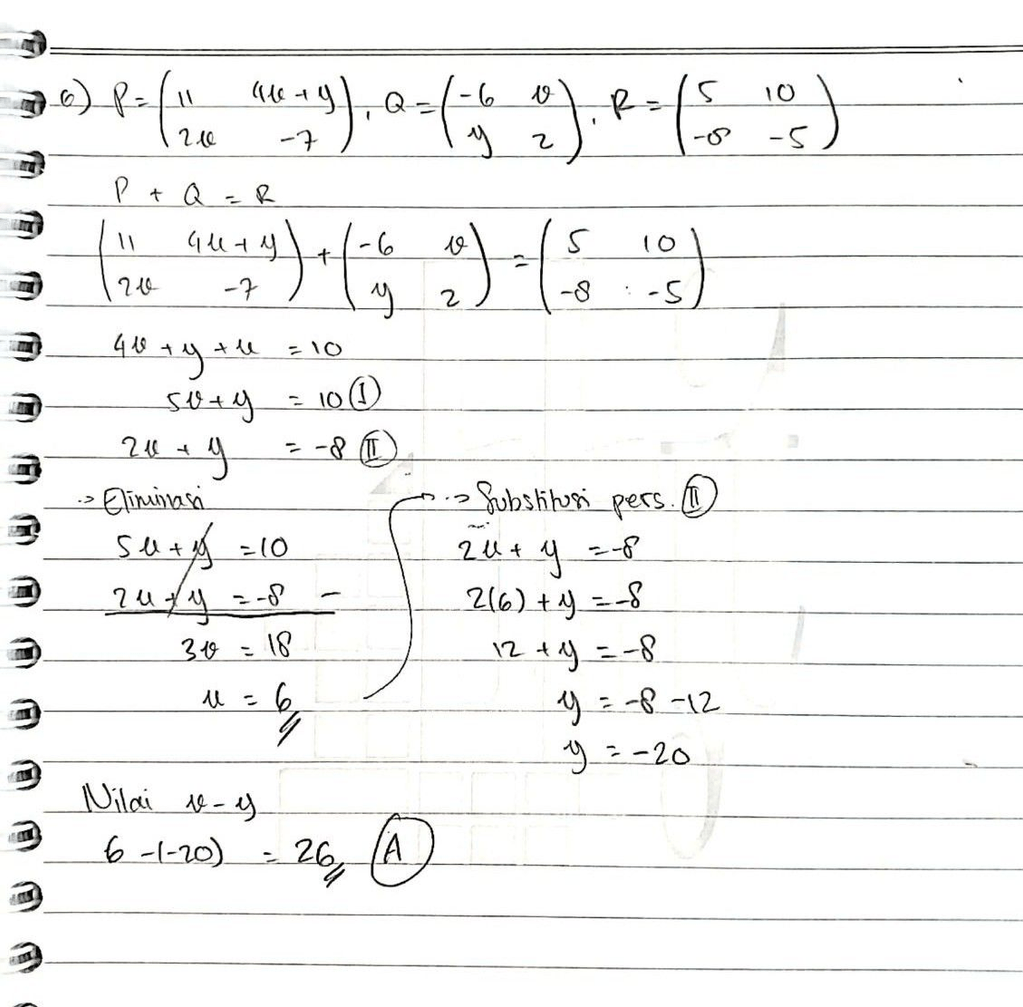 6) P = (11 4x+y ; 2x -7), Q = (-6 x ; y 2), R = (5 10 ; -8 -5)
P + Q = R
(11 4x+y ; 2x -7) + (-6 x ; y 2) = (5 10 ; -8 -5)
4x + y + x = 10
5x + y = 10 (I)
2x + y = -8 (II)
-> Eliminasi
5x + y = 10
2x + y = -8 -
3x = 18
x = 6
-> Substitusi pers. (II)
2x + y = -8
2(6) + y = -8
12 + y = -8
y = -8 -12
y = -20
Nilai x - y
6 -(-20) = 26 (A)